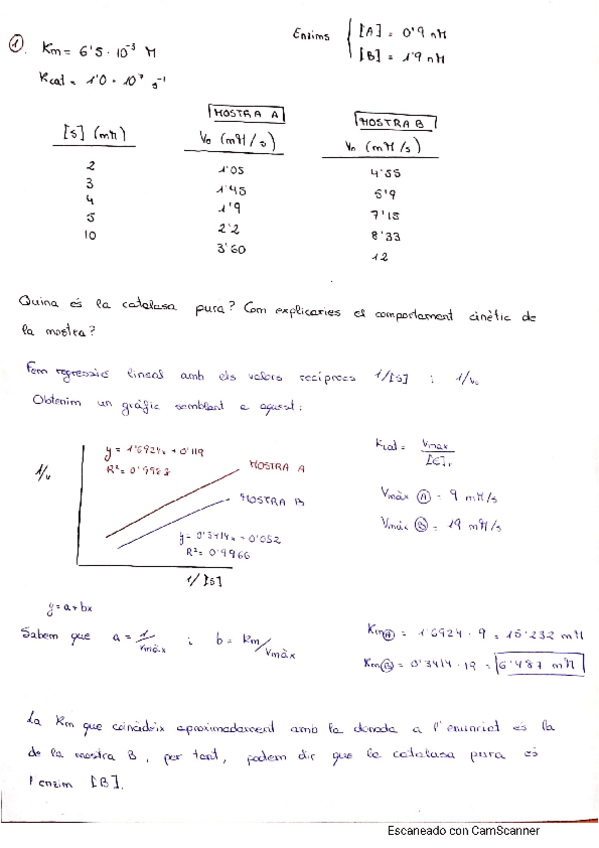 ① Km = 6'5 · 10⁻³ M
Kcat = 1'0 · 10⁷ s⁻¹
Enzims { [A] = 0'9 nM
[B] = 1'9 nM
MOSTRA A MOSTRA B
[S] (mM) V₀ (mM/s) V₀ (mM/s)
2 1'05 4'55
3 1'45 5'9
4 1'9 7'15
5 2'2 8'33
10 3'60 12
Quina és la catalasa pura? Com explicaries el comportament cinètic de
la mostra?
Fem regressió lineal amb els valors recíprocs 1/[S] i 1/V₀
Obtenim un gràfic semblant a aquest:
1/v
y = 1'6924x + 0'119
R² = 0'9983
MOSTRA A
MOSTRA B
y = 0'3414x + 0'052
R² = 0'9966
1/[S]
Kcat = Vmax / [E]T
Vmàx Ⓐ = 9 mM/s
Vmàx Ⓑ = 19 mM/s
y = a + bx
Sabem que a = 1/Vmàx i b = Km/Vmàx
KmⒶ = 1'6924 · 9 = 15'232 mM
KmⒷ = 0'3414 · 19 = 6'487 mM
La Km que coincideix aproximadament amb la donada a l'enunciat és la
de la mostra B, per tant, podem dir que la catalasa pura és
l'enzim [B].
Escaneado con CamScanner